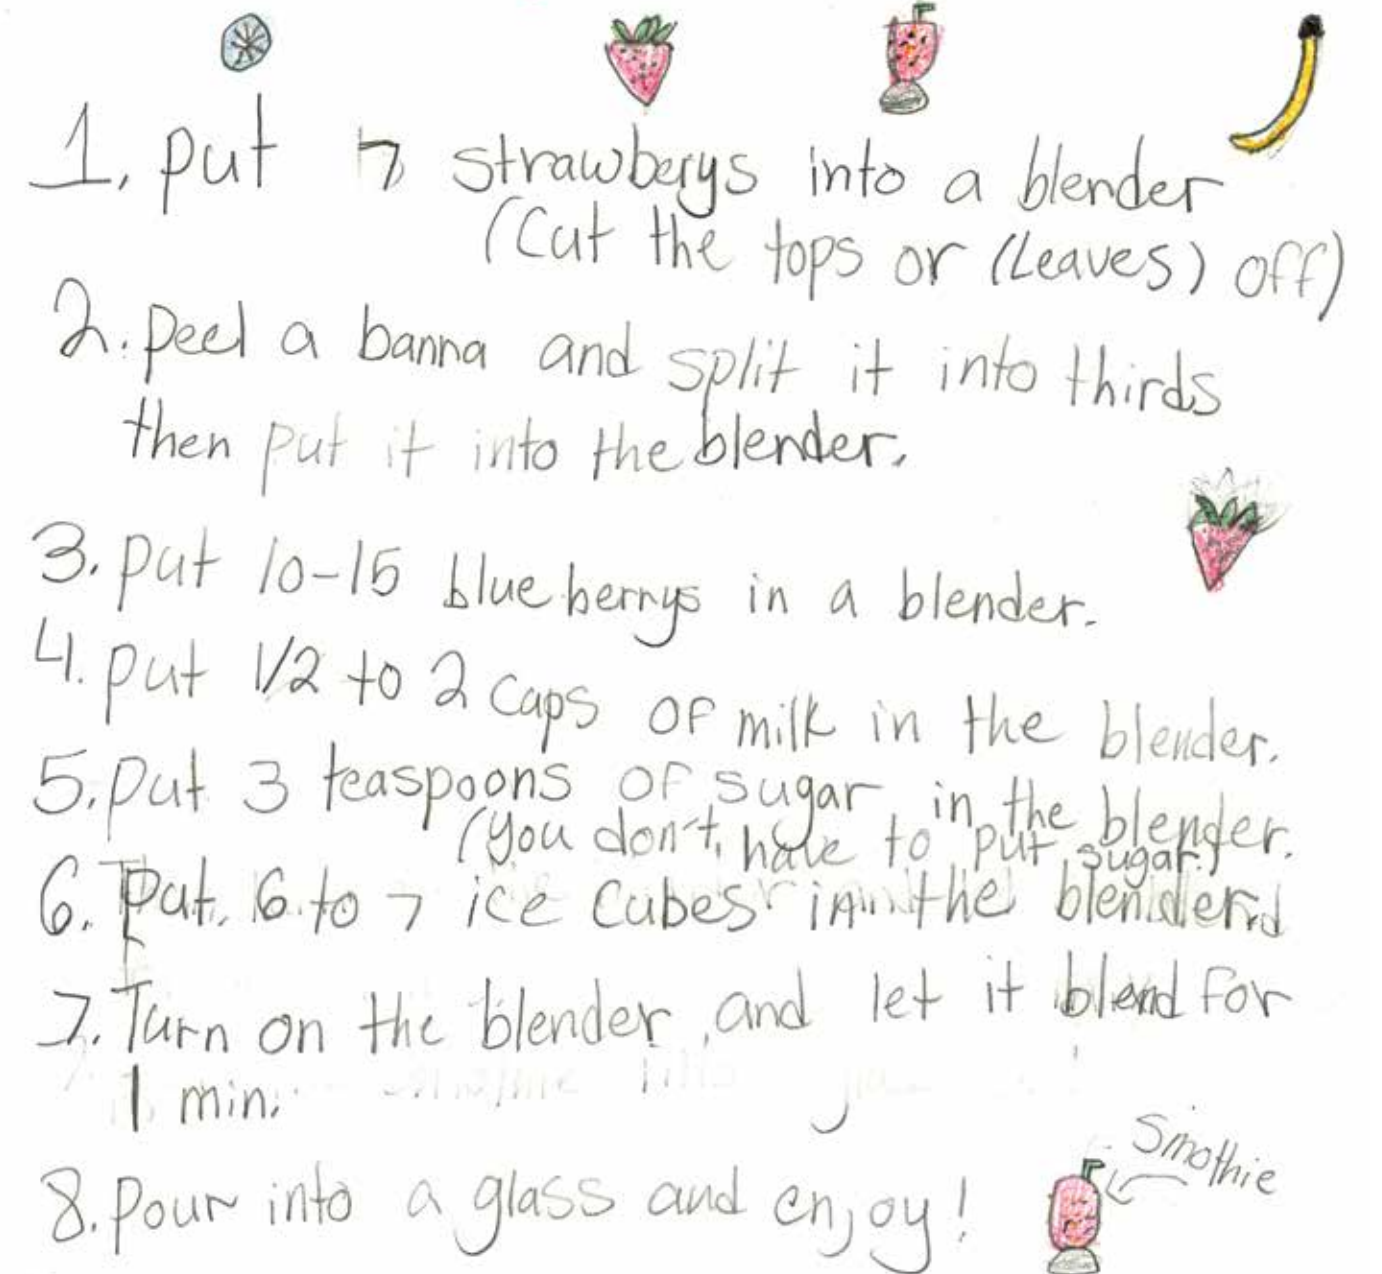 1. put 7 strawberys into a blender
(Cut the tops or (Leaves) off)
2. Peel a banna and split it into thirds
then put it into the blender.
3. put 10-15 blueberrys in a blender.
4. put 1/2 to 2 cups of milk in the blender.
5. put 3 teaspoons of sugar in the blender.
(you don't have to put sugar.)
6. Put 6 to 7 ice cubes in the blender.
7. Turn on the blender and let it blend for
1 min.
8. Pour into a glass and enjoy!
Smothie